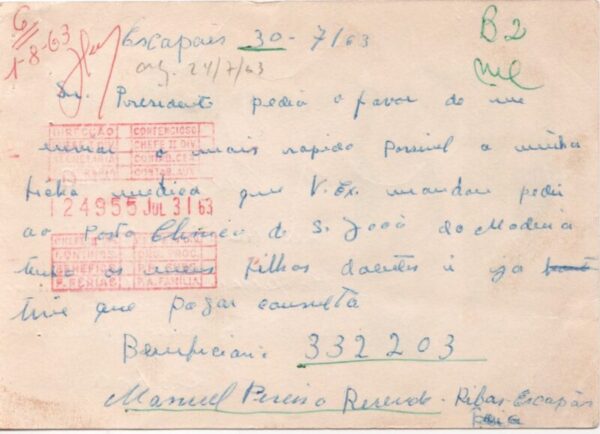 6
1-8-63
Escapães 30-7/63
B2
24/7/63
Sr. Presidente pedia o favor de me
DIRECÇÃO CONTENCIOSO
CHEFE II DIV.
SECRETARIA
enviar o mais rapido Possivel a minha
ficha medica que V. Ex. mandou pedir
124955 JUL 31 63
ao Posto Clinico de S. João da Madeira
tenho os meus filhos doentes i ja
P. FERIAS P. A. FAMILIA
tive que pagar consulta
Beneficiario 332203
Manuel Pereira Resende - Ribas-Escapães